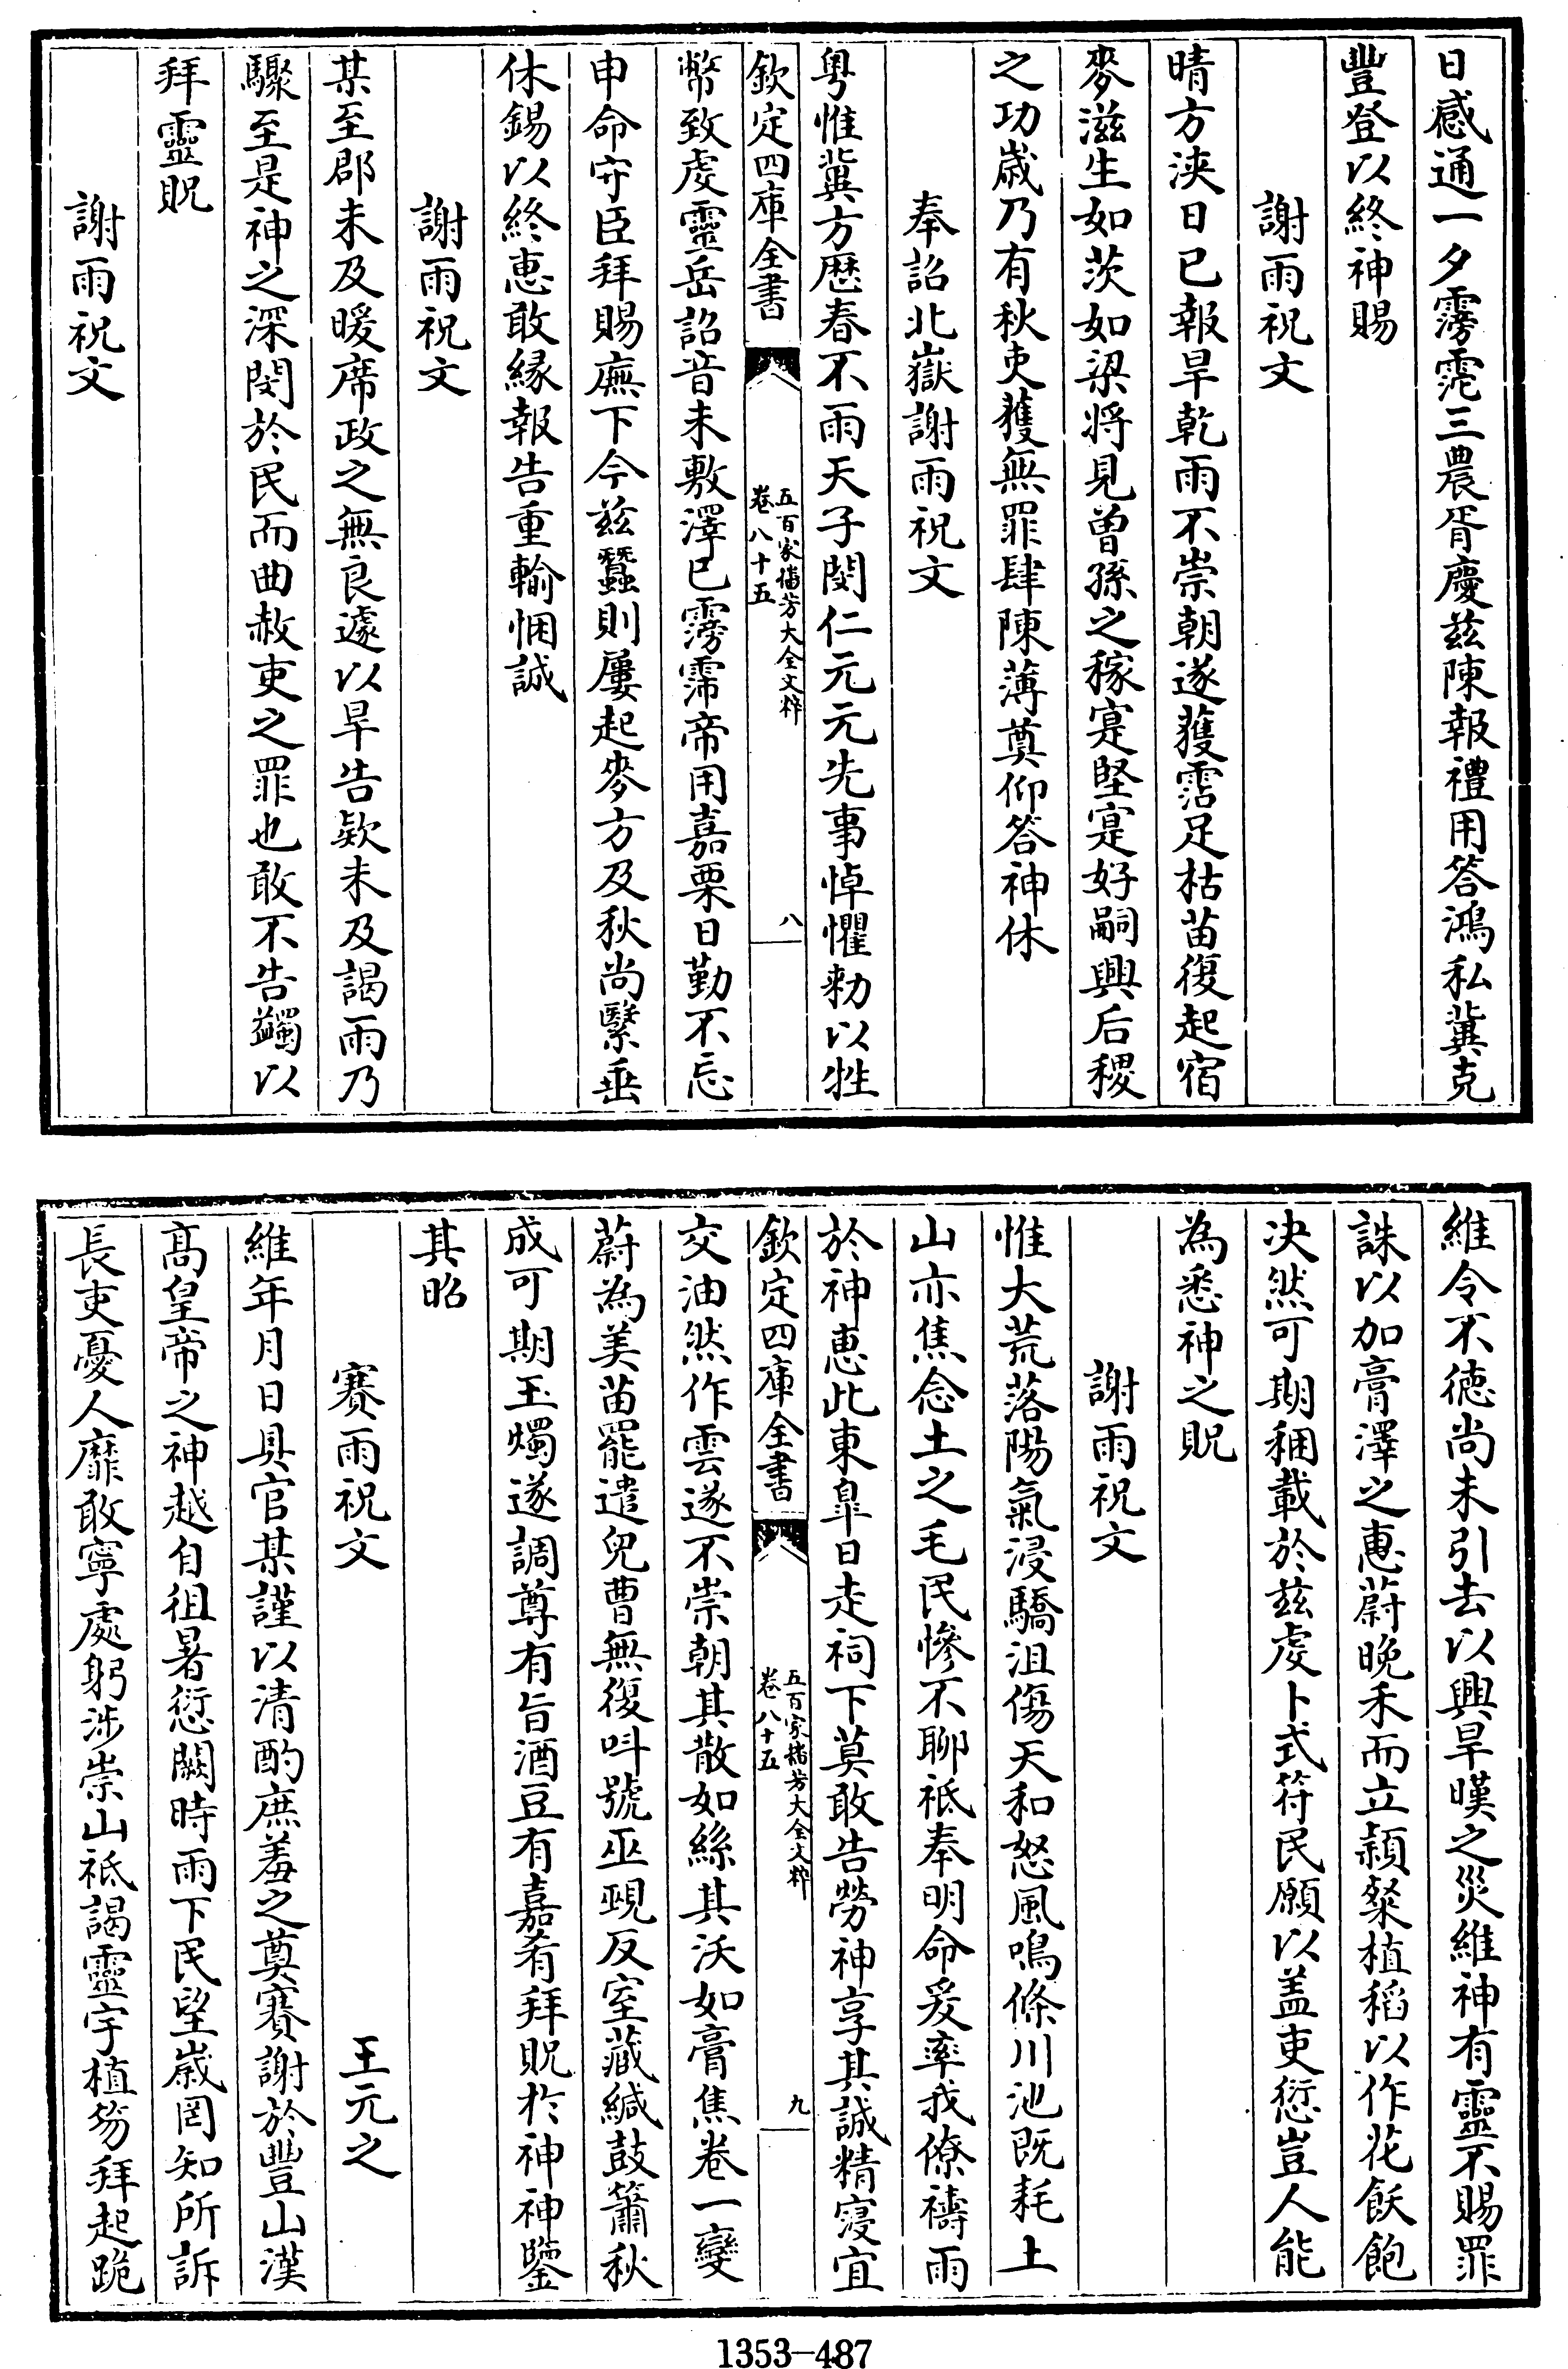 日感通一夕霶霈三農胥慶兹陳報禮用答鴻私冀克
豐登以終神賜
謝雨祝文
晴方浹日已報旱乾雨不崇朝遂蒙霑足枯苗復起宿
麥滋生如茨如梁將見曽孫之稼寔堅寔好嗣興后稷
之功嵗乃有秋吏獲無罪肆陳薄奠仰答神休
奉詔北嶽謝雨祝文
粤惟冀方厯春不雨天子閔仁元元先事悼懼勑以牲
欽定四庫全書
五百家播芳大全文粹
卷八十五
八
幣致虔靈岳詔音未敷澤已霶霈帝用嘉栗日勤不忘
申命守臣拜賜廡下今兹蠶則屢起麥方及秋尚繄垂
休錫以終惠敢緣報告重輸悃誠
謝雨祝文
某至郡未及暖席政之無良遽以旱告欵未及謁雨乃
驟至是神之深閔於民而曲赦吏之罪也敢不告蠲以
拜靈貺
謝雨祝文
維令不徳尚未引去以興旱暵之災維神有靈不賜罪
誅以加膏澤之惠蔚晚禾而立穎粲植稻以作花飫飽
决然可期稇載於兹虔卜式符民願以盖吏愆豈人能
為悉神之貺
謝雨祝文
惟大荒落陽氣浸驕沮傷天和怒風鳴條川池既耗土
山亦焦念土之毛民慘不聊祗奉明命爰率我僚禱雨
於神惠此東皐日走祠下莫敢告勞神享其誠精寖宜
欽定四庫全書
五百家播芳大全文粹
卷八十五
九
交油然作雲遂不崇朝其散如絲其沃如膏焦卷一變
蔚為美苗罷遣兒曹無復呌號巫覡反室藏緘鼓簫秋
成可期玉燭遂調尊有旨酒豆有嘉肴拜貺於神神鑒
其昭
賽雨祝文
王元之
維年月日具官某謹以清酌庶羞之奠賽謝於豐山漢
髙皇帝之神越自徂暑愆闕時雨下民望嵗罔知所訴
長吏憂人靡敢寧處躬涉崇山祗謁靈宇植笏拜起跪
1353—487